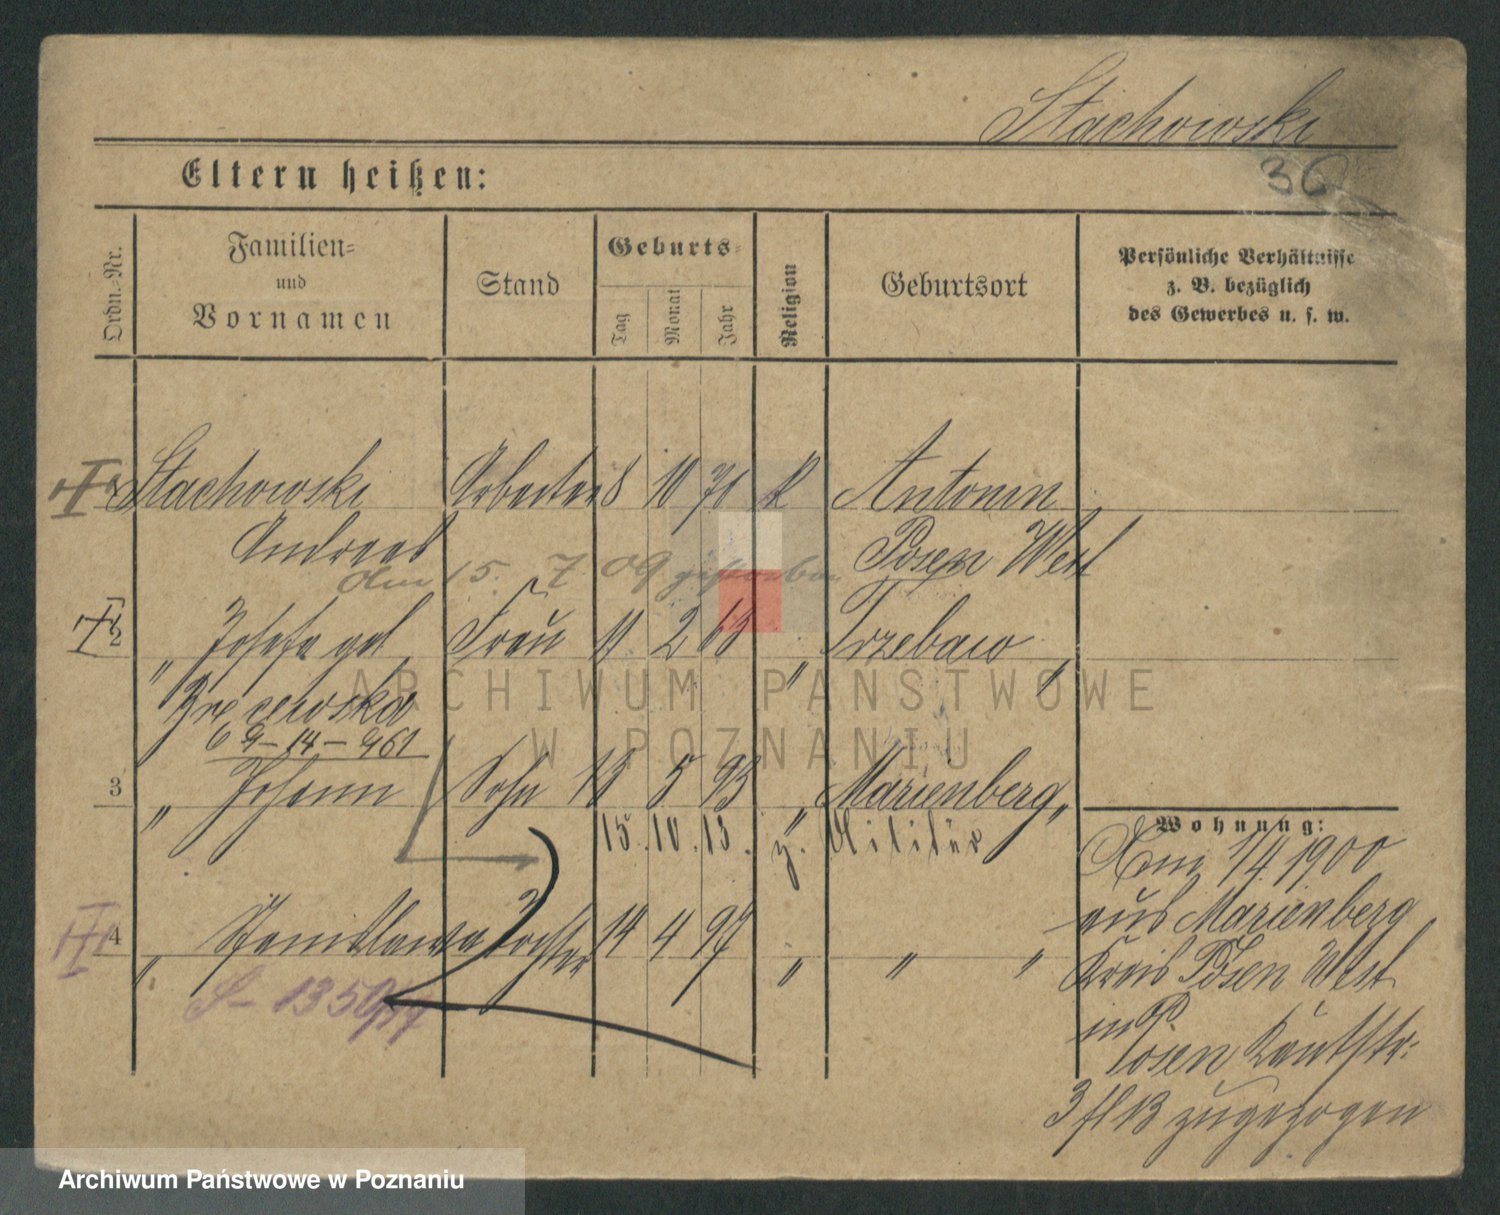 Stachowski
36
Eltern heißen:
Ordn.-Nr.
Familien-
und
Vornamen
Stand
Geburts-
Tag
Monat
Jahr
Religion
Geburtsort
Persönliche Verhältnisse
z. B. bezüglich
des Gewerbes u. s. w.
Stachowski Arbeiter 8 10 71 K Antonin
Andreas Posen West
am 15. 7 09 gestorben
2 " Josefa geb Frau 11 2 63 " Trzebaw "
69-14-961
3 " Johann Sohn 13 5 93 " Marienberg "
15. 10. 13. z. Militär
4 " Stanislawa Tochter 14 4 97 " " "
Wohnung:
Am 1/4 1900
aus Marienberg
Kreis Posen West
in
Posen
3 zugezogen
ARCHIWUM PAŃSTWOWE
W POZNANIU
Archiwum Państwowe w Poznaniu